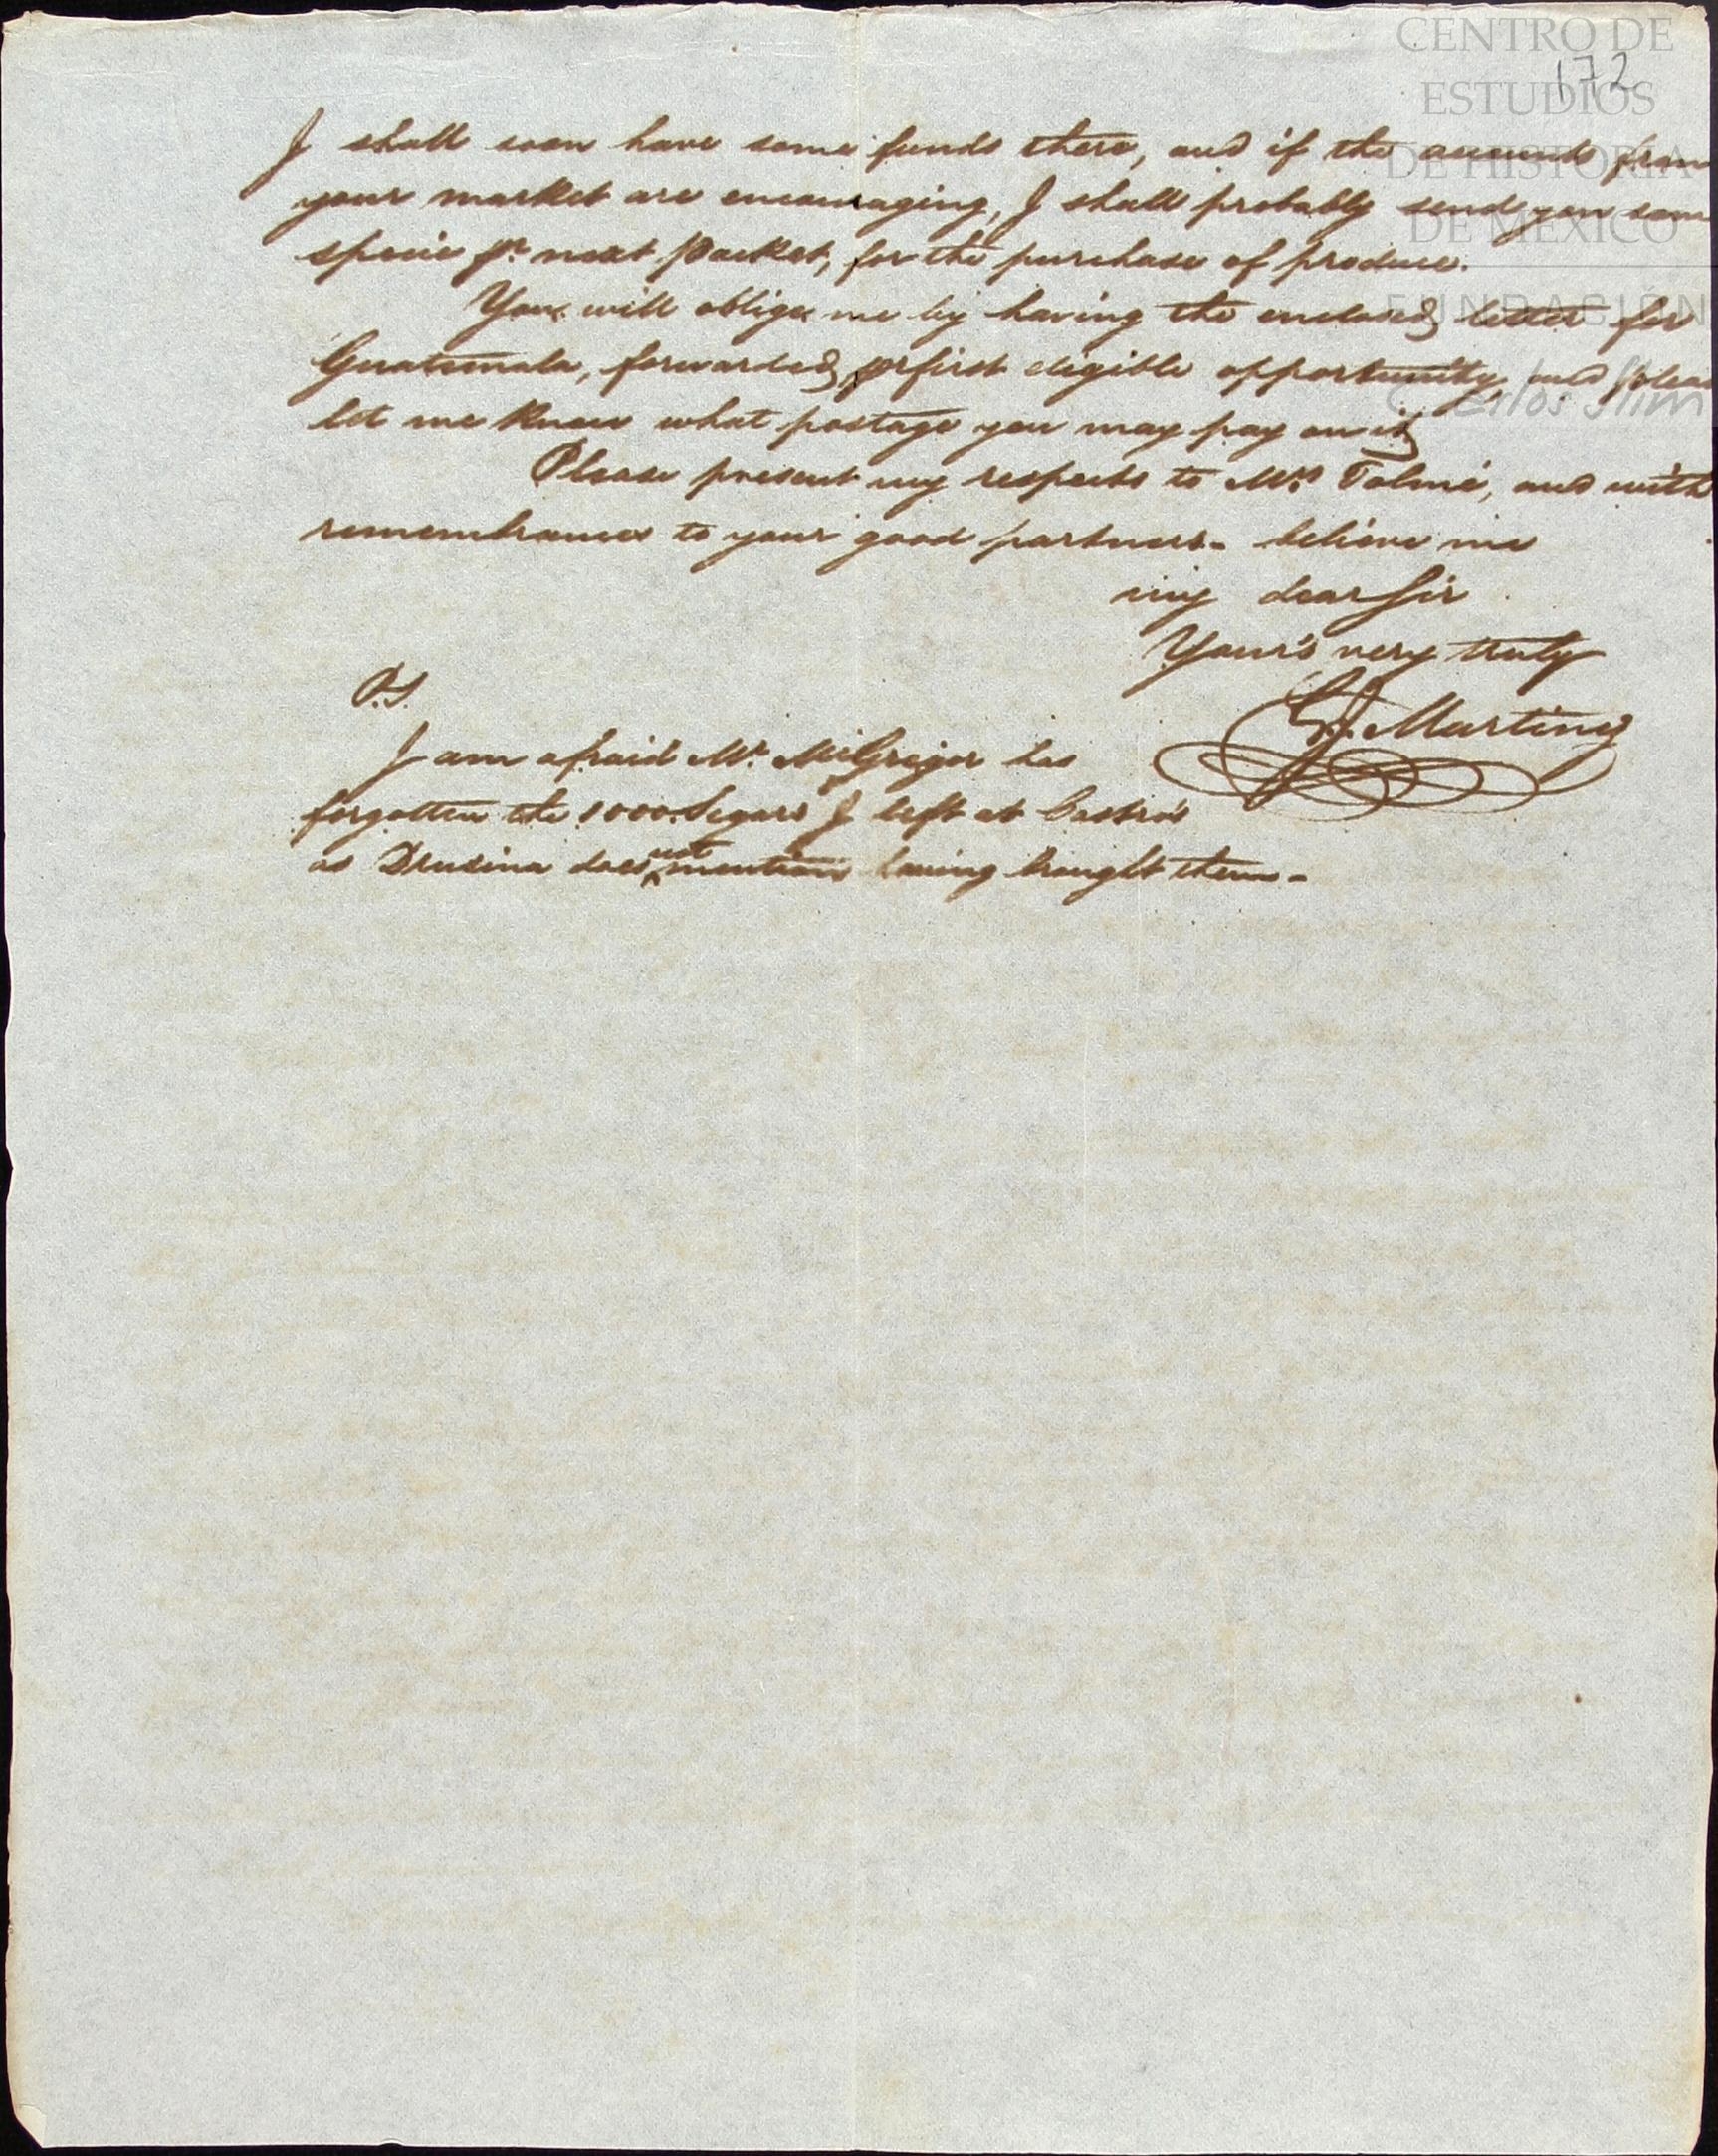 CENTRO DE
ESTUDIOS
DE HISTORIA
DE MEXICO
FUNDACIÓN
Carlos Slim
172
I shall soon have some funds there, and if the accounts from
your market are encouraging, I shall probably send you some
specie pr next packet, for the purchase of produce.
You will oblige me by having the enclosed letter for
Guatemala, forwarded pr first eligible opportunity, and please
let me know what postage you may pay on it
Please present my respects to Mrs Tolmé, and with
remembrances to your good partners - believe me
my dear Sir
Your's very truly
Martinez
P.S.
I am afraid Mr McGregor has
forgotten the 1000 Segars I left at Castro's
as Drusina does not mention having brought them -